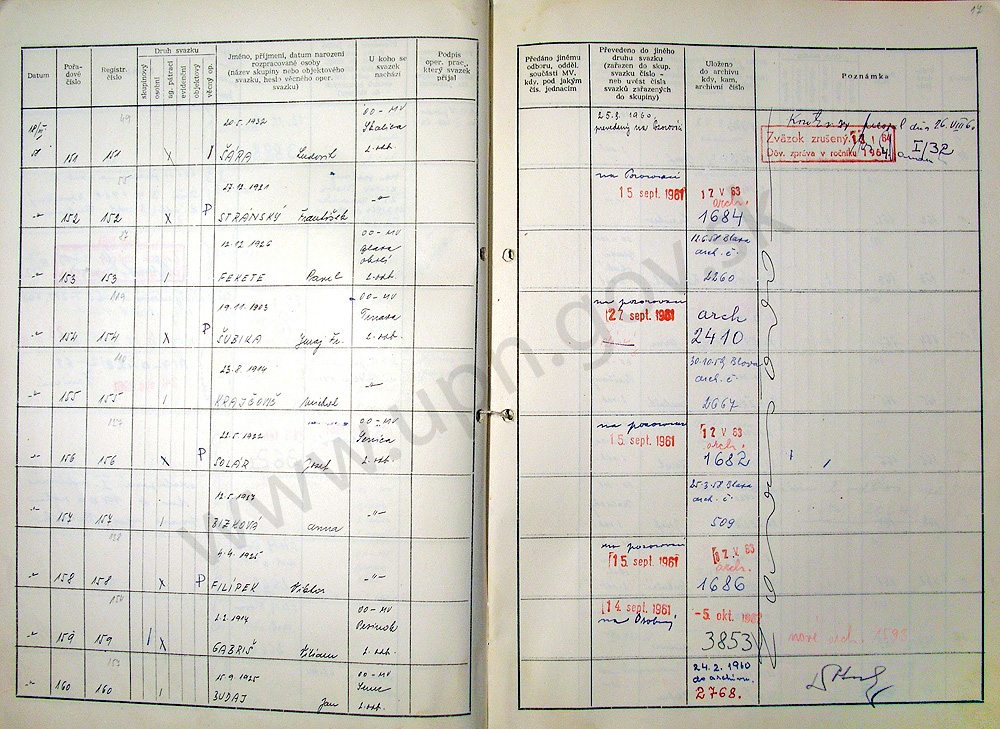 17
Datum
Pořadové číslo
Registr. číslo
Druh svazku
skupinový
osobní
ag. pátrací
evidenční
objektový
věcný op.
Jméno, příjmení, datum narození
rozpracované osoby
(název skupiny nebo objektového
svazku, hesl) věcného oper.
svazku)
U koho se
svazek
nachází
Podpis
oper. prac.
který svazek
přijal
Předáno jinému
odboru, odděl.
součásti MV.
kdy, pod jakým
čís. jednacím
Převedeno do jiného
druhu svazku
(zařazen do skup.
svazku číslo -
neb uvést čísla
svazků zařazených
do skupiny)
Uloženo
do archivu
kdy, kam,
archivní číslo
Poznámka
49
20.5.1932
OO-MV
Skalica
151 151 x ŠÁRA Ľudovít 2. odd.
25.3.1960
Zväzok zrušený
Dôv. zpráva v ročníku 1964
I/32
55
27.12.1921
-"-
-"- 152 152 x P STRÁNSKÝ František
15. sept. 1961
12 V 63
arch.
1684
87
12.12.1926
OO-MV
-"- 153 153 FEKETE Pavel 2. odd.
12.6.58 Blava
arch. č.
2260
119
19.11.1903
OO-MV
Trnava
-"- 154 154 x P ŠUBIKA Juraj Fr. 2. odd.
na pozorovaní
27. sept. 1961
arch
2410
23.8.1914
-"-
-"- 155 155 KRAJČOVIČ
30.10.59 Blava
arch. č.
2667
127
22.5.1932
OO-MV
Senica
-"- 156 156 x P SOLÁR Jozef 2. odd.
na pozorovaní
15. sept. 1961
12 V 63
arch.
1682
12.5.1917
-"-
-"- 157 157 BIZKOVÁ Anna
25.3.58 Blava
arch. č.
509
138
4.4.1925
-"-
-"- 158 158 x P FILÍPEK Viktor
na pozorovaní
15. sept. 1961
12 V 63
arch.
1686
154
2.2.1914
OO-MV
Pezinok
-"- 159 159 x GABRIŠ Viliam 2. odd.
14. sept. 1961
na Osobný
-5. okt.
3853
nové arch. 1593
157
15.9.1925
OO-MV
Senec
-"- 160 160 BUDAJ Jan 2. odd.
24.2.1960
do archívu
2768.
www.upn.gov.sk